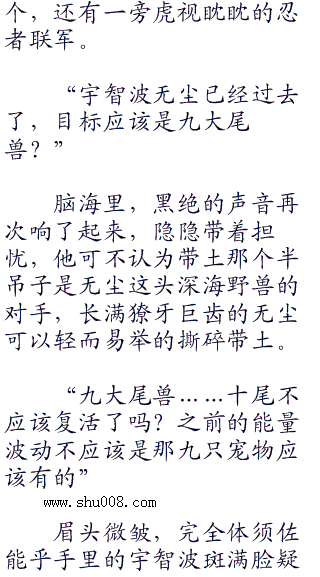 个，还有一旁虎视眈眈的忍
者联军。
“宇智波无尘已经过去
了，目标应该是九大尾
兽？”
脑海里，黑绝的声音再
次响了起来，隐隐带着担
忧，他可不认为带土那个半
吊子是无尘这头深海野兽的
对手，长满獠牙巨齿的无尘
可以轻而易举的撕碎带土。
“九大尾兽……十尾不
应该复活了吗？之前的能量
波动不应该是那九只宠物应
该有的”
www.shu008.com
眉头微皱，完全体须佐
能乎手里的宇智波斑满脸疑